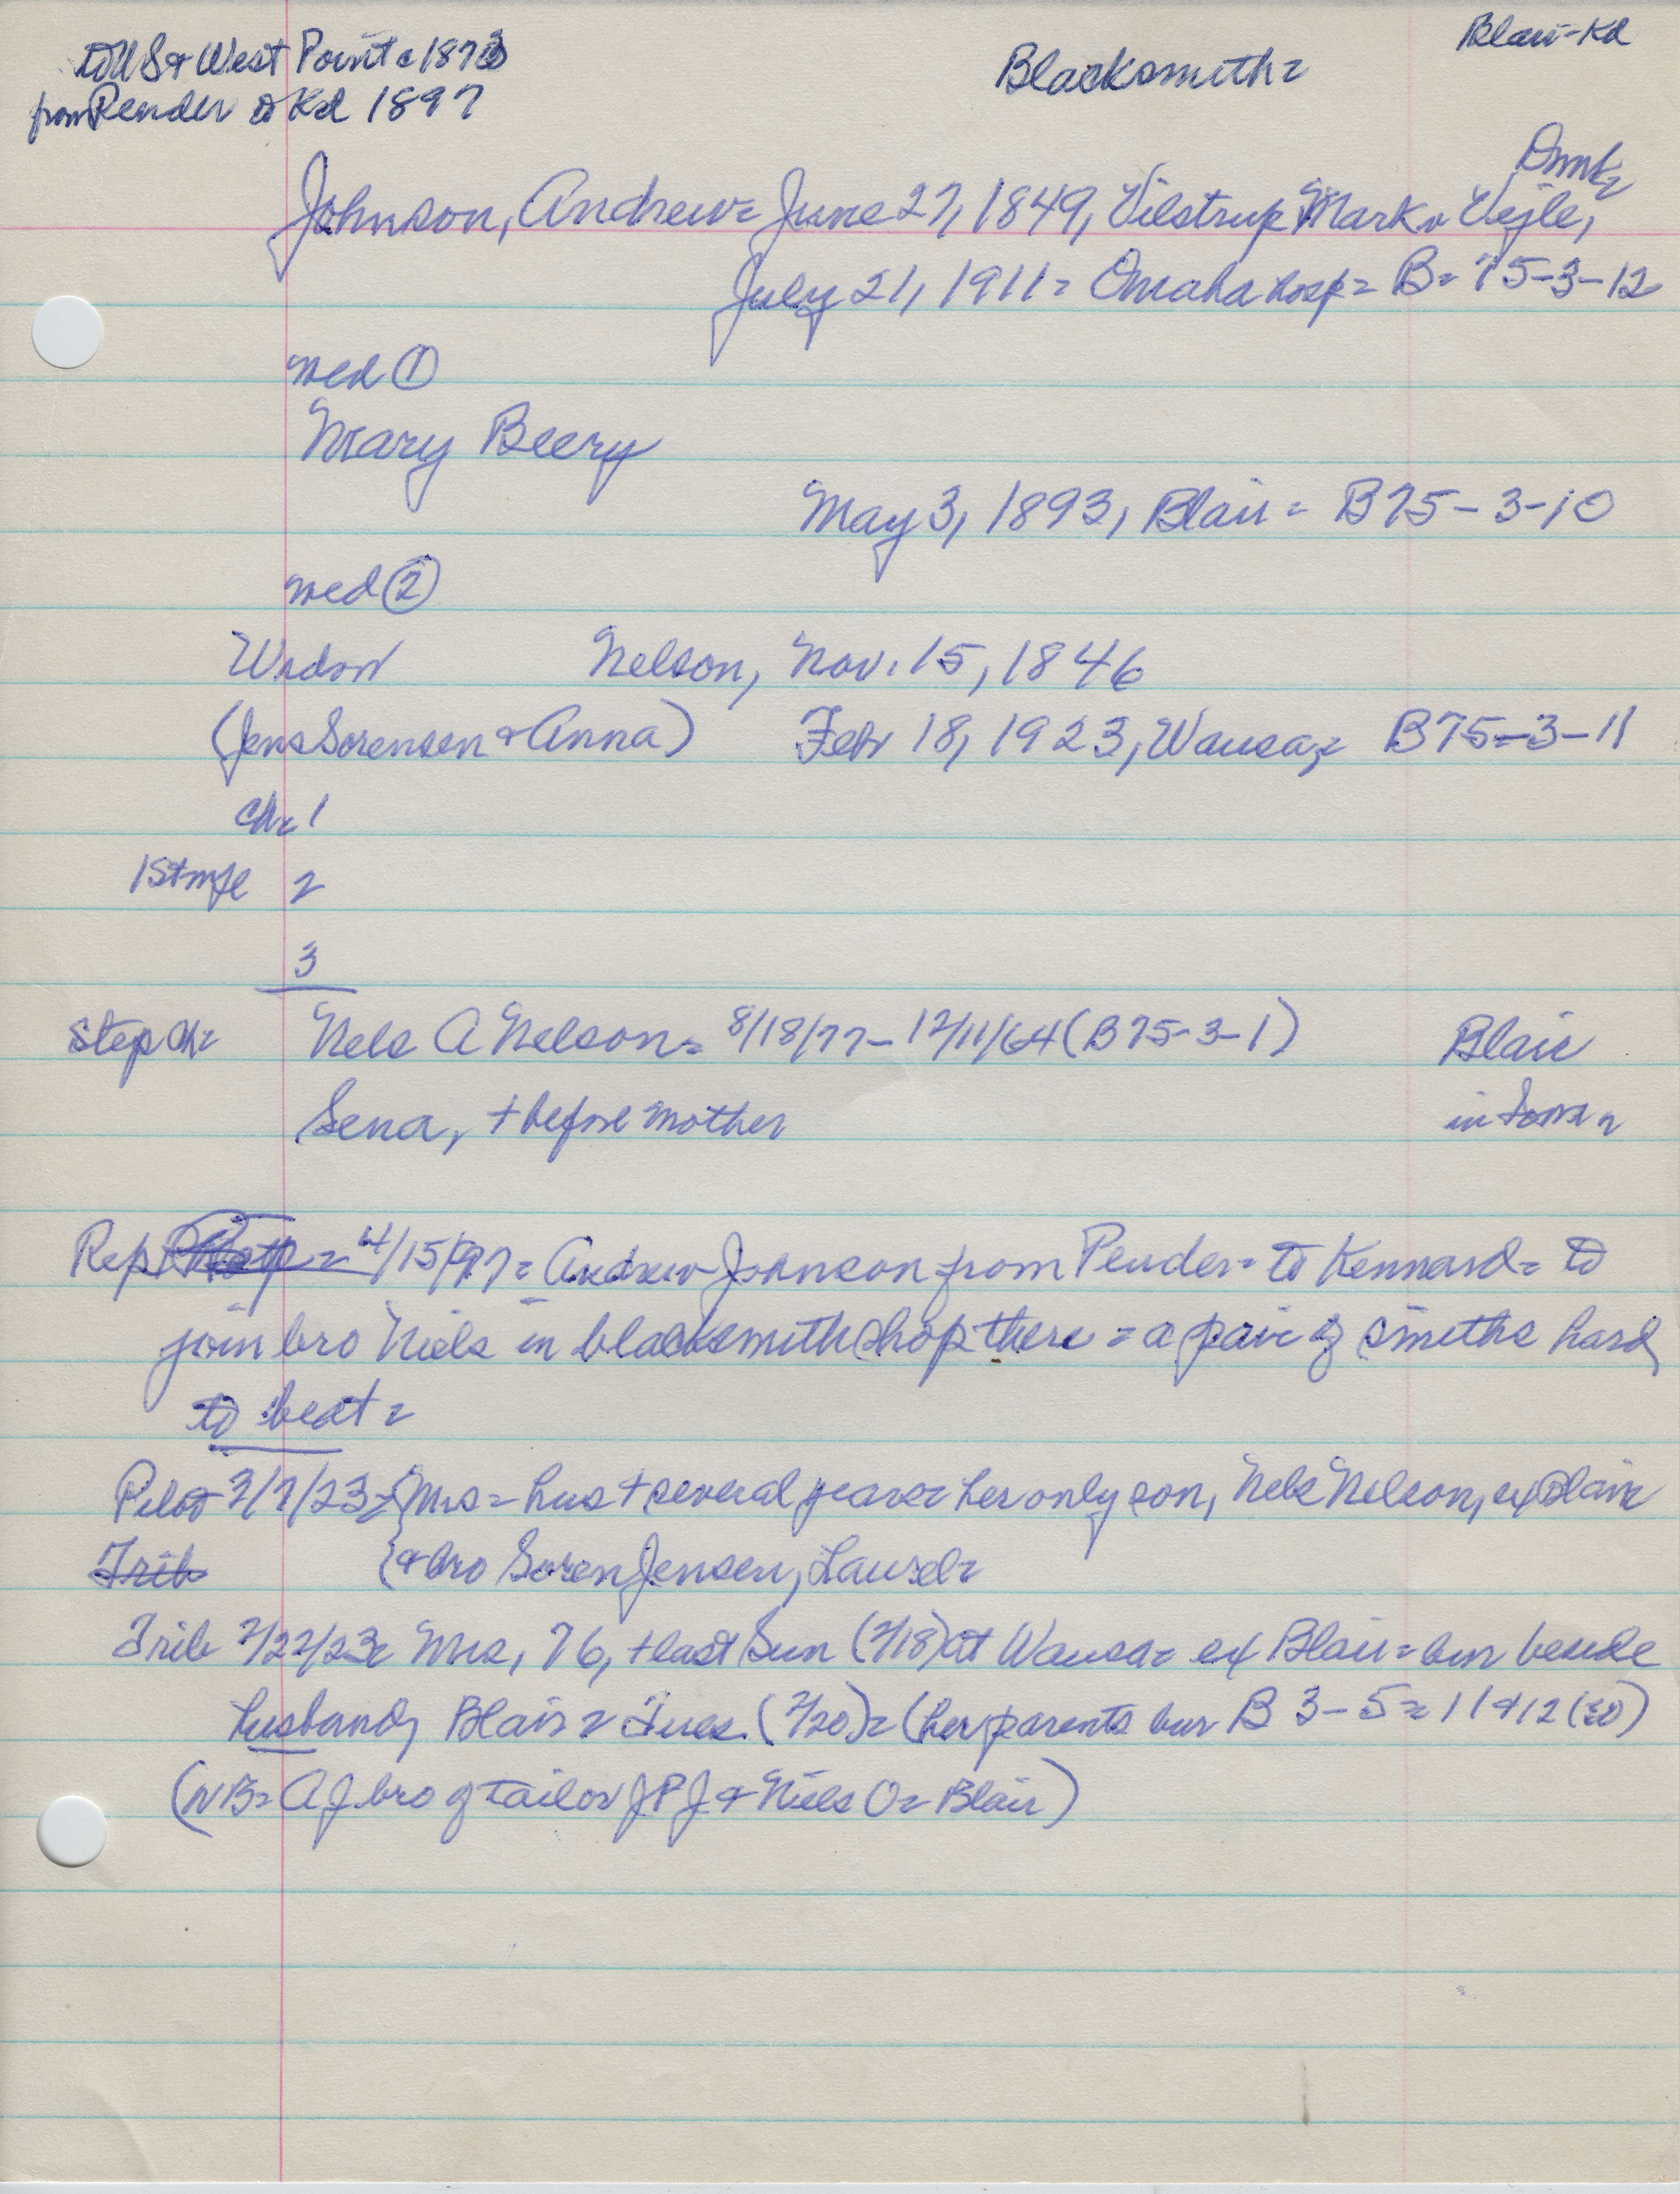 to US & West Point c 1873
from Pender to Kd 1897
Blacksmith=
Blair-Kd
Dmk=
Johnson, Andrew= June 27, 1849, Vilstrup Mark, Vejle,
July 21, 1911= Omaha hosp= B= 75-3-12
wed ①
Mary Beery
May 3, 1893, Blair= B75-3-10
wed ②
Widow Nelson, Nov. 15, 1846
(Jens Sorensen & Anna) Febr 18, 1923, Wausa= B75-3-11
Ch= 1
1st mge 2
3
Step ch= Nels A Nelson= 8/18/77- 12/11/64 (B75-3-1) Blair
Sena, + before mother in Iowa=
Rep = 4/15/97= Andrew Johnson from Pender= to Kennard= to
join bro Niels in blacksmith shop there= a pair of smiths hard
to beat=
Pilot 3/7/23= Mrs= hus + several years= her only son, Nels Nelson, ex Blair
Trib & bro Soren Jensen, Laurel=
Trib 2/22/23= Mrs, 76, + last Sun (2/18) at Wausa= ex Blair= bur beside
husband, Blair= Tues. (2/20)= (her parents bur B 3-5= 11 & 12 (SO)
(NB= AJ bro of tailor JPJ & Niels O= Blair)